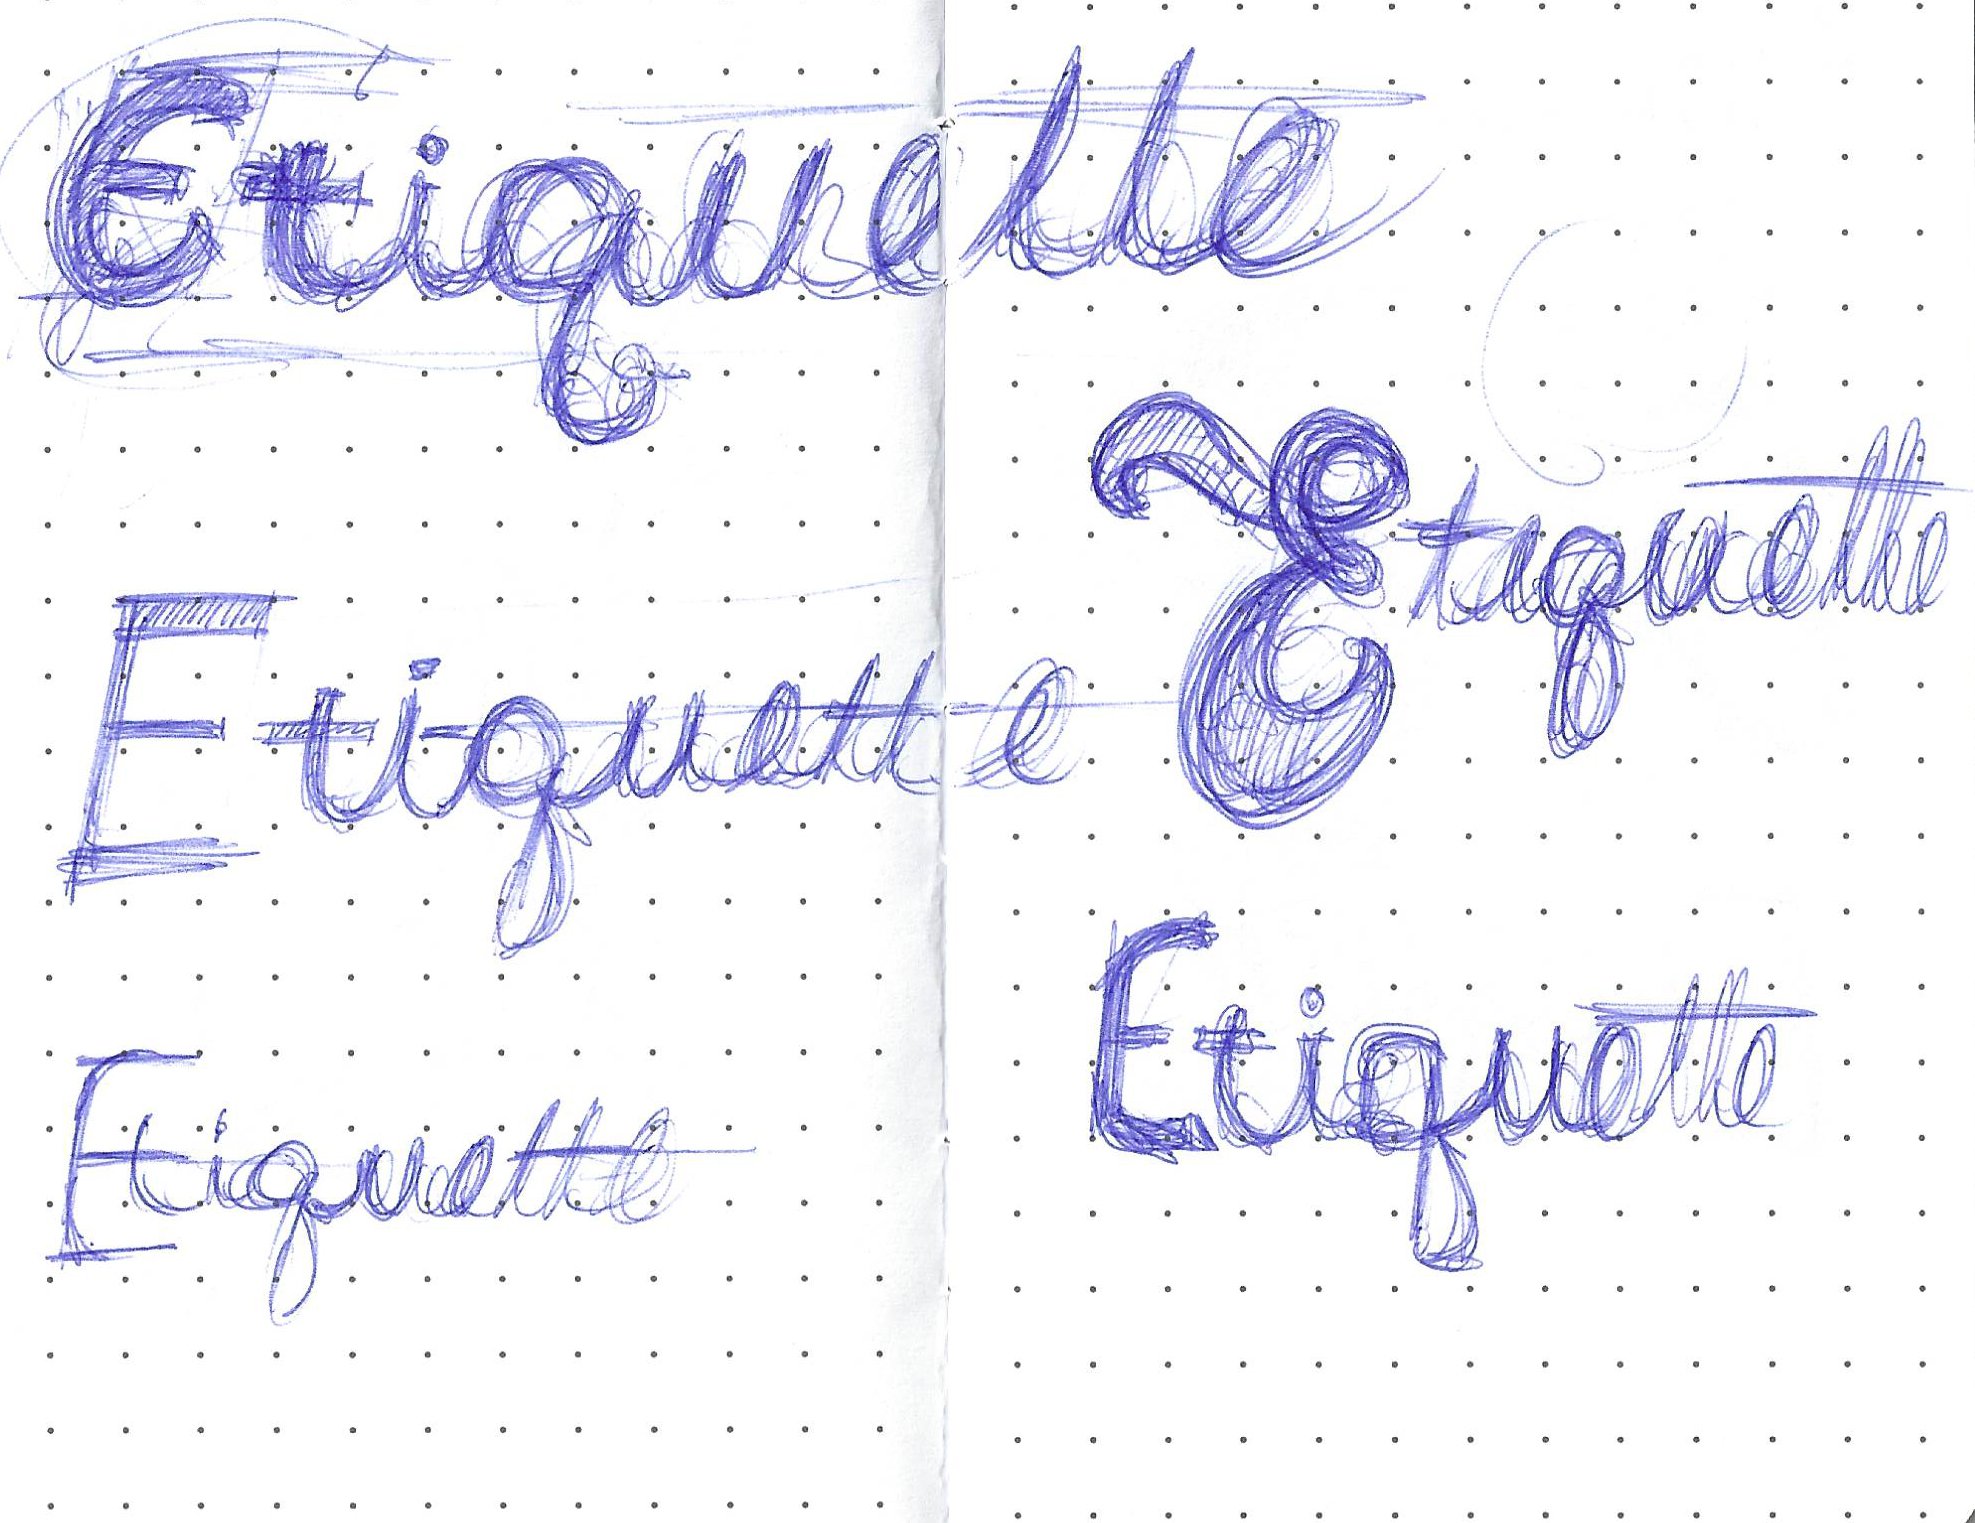 Etiquette
Etiquette
Etiquette
Etiquette
Etiquette